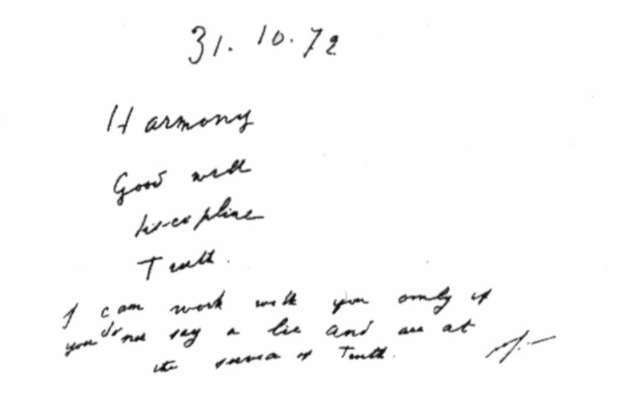 31. 10. 72
Harmony
Good will
Discipline
Truth.
I can work with you only if
you do not say a lie and are at
the service of Truth.